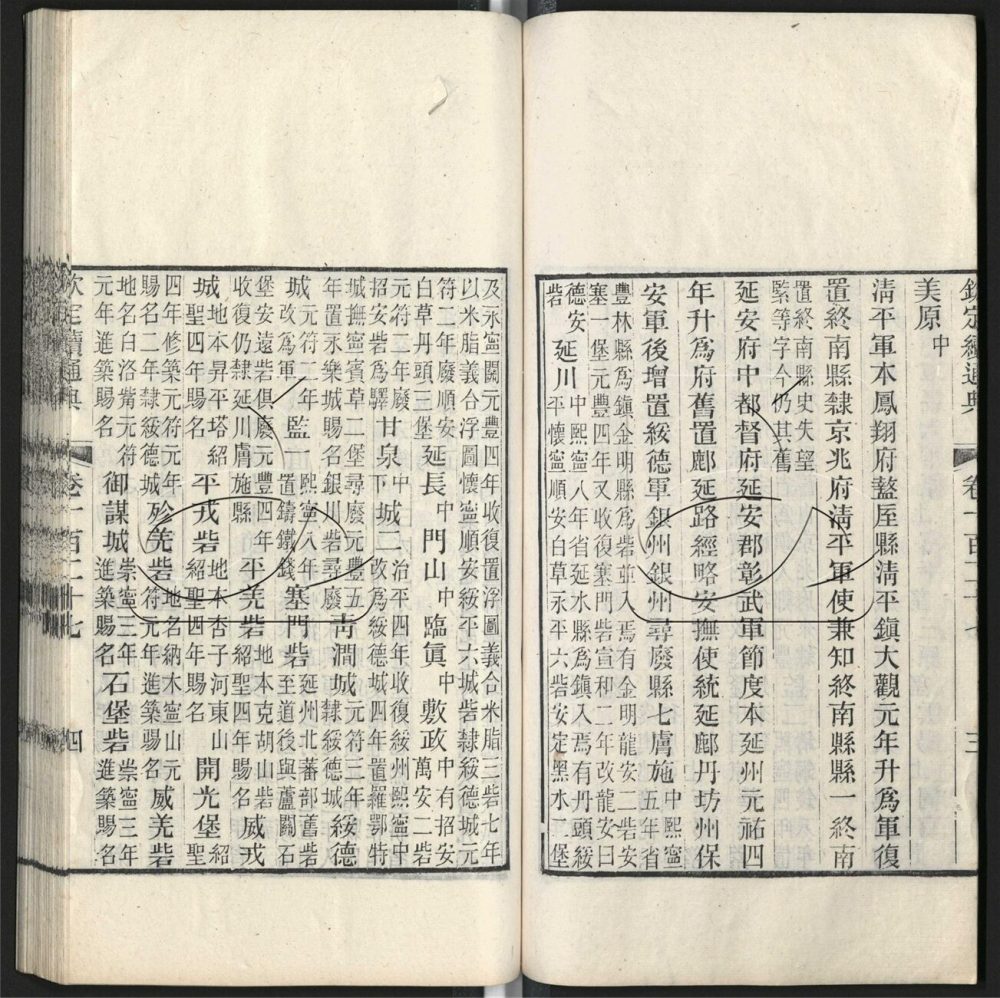 欽定續通典 卷一百二十七 三
美原中
清平軍本鳳翔府盩厔縣清平鎮大觀元年升爲軍復
置終南縣隸京兆府清平軍使兼知終南縣縣一終南
置終南縣史失望
緊等字今仍其舊
延安府中都督府延安郡彰武軍節度本延州元祐四
年升爲府舊置鄜延路經略安撫使統延鄜丹坊州保
安軍後增置綏德軍銀州銀州尋廢縣七膚施中熙寧五年省
豐林縣爲鎮金明縣爲砦並入焉有金明龍安二砦安
塞一堡元豐四年又收復塞門砦宣和二年改龍安曰
德安砦延川中熙寧八年省延水縣爲鎮入焉有丹頭綏平懷寧順安白草永平六砦安定黑水二堡
及永寧關元豐四年收復置浮圖義合米脂三砦七年
以米脂義合浮圖懷寧順安綏平六城砦隸綏德城元
符二年廢順安白草丹頭三堡延長中門山中臨眞中敷政中有招安萬安二砦
元符二年廢招安砦爲驛甘泉下城二治平四年收復綏州熙寧中改爲綏德城四年置羅鄂特
城撫寧賓草二堡尋廢元豐五年置永樂城賜名銀川砦尋廢靑澗城元符三年再隸綏德城綏德
城元符二年改爲軍監一熙寧八年置鑄鐵錢塞門砦延州北蕃部舊砦至道後與蘆關石
堡安遠砦俱廢元豐四年收復仍隸延川膚施縣平羌砦地本克胡山砦紹聖四年賜名威戎
城地本昇平塔紹聖四年賜名平戎砦地本杏子河東山紹聖四年賜名開光堡紹聖
四年修築元符元年賜名二年隸綏德城殄羌砦地名納木寧山元符元年進築賜名威羌砦
地名白洛觜元符元年進築賜名御謀城崇寧三年進築賜名石堡砦崇寧三年進築賜名
欽定續通典 卷一百二十七 四